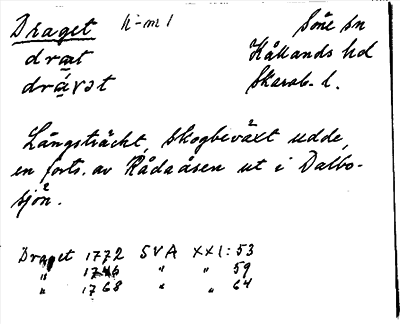 Draget n-m 1 Söne sn
dræt Kållands hd
drávət Skarab. l.
Långsträckt, skogbeväxt udde,
en forts. av Rådaåsen ut i Dalbo-
sjön.
Draget 1772 SVA XXI: 53
" 1746 " " 59
" 1768 " " 64